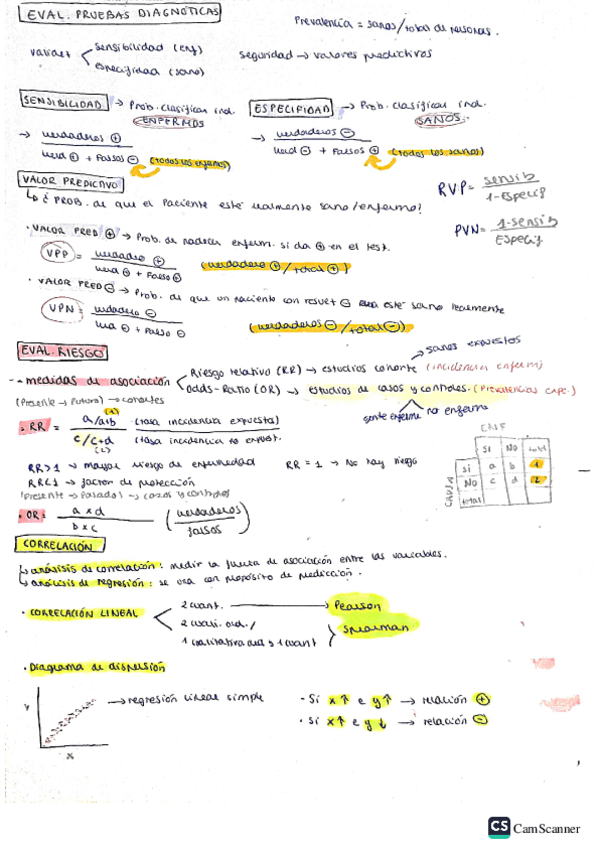 EVAL. PRUEBAS DIAGNÓSTICAS
Prevalencia = sanos/total de personas.
validez
sensibilidad (enf)
especifidad (sano)
seguridad → valores predictivos
SENSIBILIDAD → Prob. clasificar ind. ENFERMOS
→ verdaderos ⊕ / verd ⊕ + Falsos ⊖ (todos los enfermos)
ESPECIFIDAD → Prob. clasificar ind. SANOS
→ verdaderos ⊖ / verd ⊖ + Falsos ⊕ (todos los sanos)
VALOR PREDICTIVO
↳ ¿PROB. de que el paciente esté realmente sano/enfermo?
RVP = sensib / 1-Especif
PVN = 1-sensib / Especif
· VALOR PRED ⊕ → Prob. de padecer enferm. si da ⊕ en el test.
VPP = verdadero ⊕ / verd ⊕ + Falso ⊕ (verdadero ⊕ / total ⊕)
· VALOR PRED ⊖ → Prob. de que un paciente con result ⊖ esté sano realmente
VPN = verdadero ⊖ / verd ⊖ + Falso ⊖ (verdaderos ⊖ / total ⊖)
EVAL. RIESGO
→ sanos expuestos
- medidas de asociación
Riesgo relativo (RR) → estudios cohorte (incidencia enferm)
Odds-Ratio (OR) → estudios de casos y controles. (Prevalencias expc.)
gente enferma no enferma
(Presente → Futuro) → cohortes
· RR = a/a+b (1) (tasa incidencia expuesta) / c/c+d (2) (tasa incidencia no expuest.
RR>1 → mayor riesgo de enfermedad
RR = 1 → No hay riesgo
RR<1 → factor de protección
(Presente → Pasado) → casos y controles
· OR = a x d / b x c (verdaderos / falsos)
ENF
SI NO total
CAUSA
SI a b 1
NO c d 2
total
CORRELACIÓN
↳ análisis de correlación: medir la fuerza de asociación entre las variables.
↳ análisis de regresión: se usa con propósito de predicción.
· CORRELACIÓN LINEAL
2 cuant. → Pearson
2 cuali. ord. /
1 cualitativa ord y 1 cuant
Spearman
· Diagrama de dispersión
y
x
→ regresión lineal simple
- Si x↑ e y↑ → relación ⊕
· Si x↑ e y↓ → relación ⊖
CS CamScanner